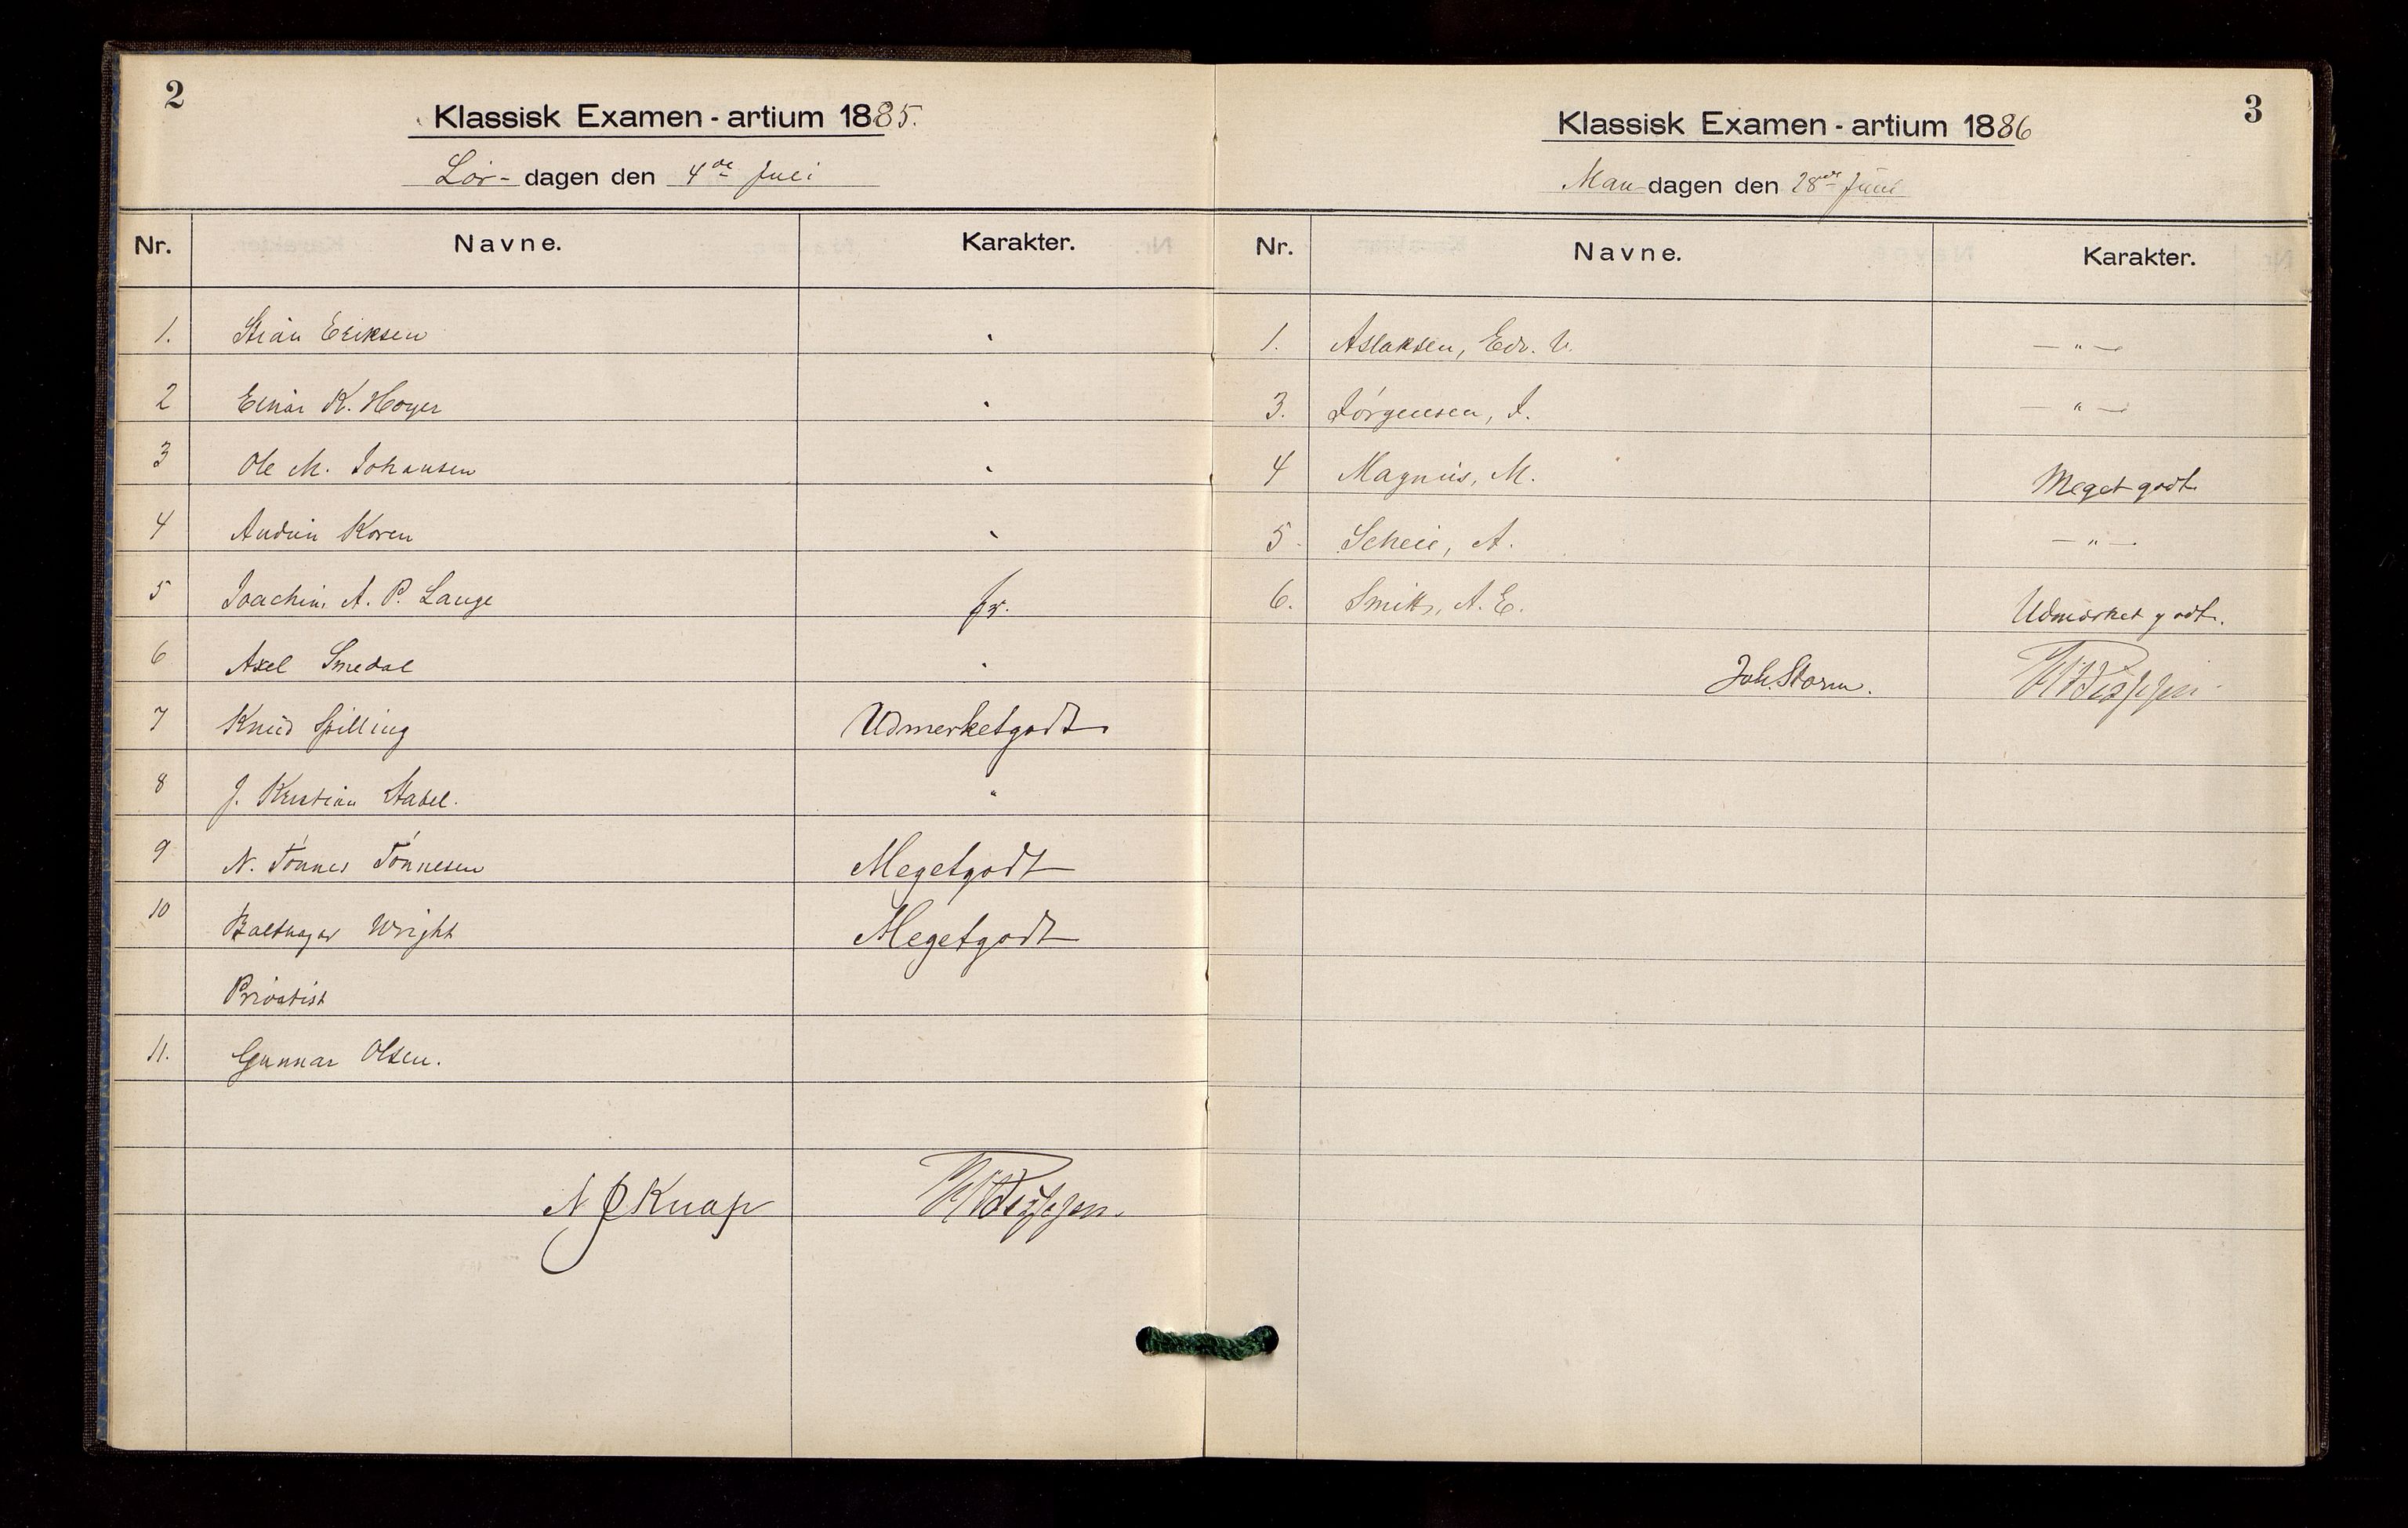 2
Klassisk Examen - artium 1885.
Lör- dagen den 4de Juli
Nr. Navne. Karakter.
1. Stian Eriksen "
2 Einar K. Hoyer "
3 Ole M. Johansen "
4 Audun Koren "
5 Joachim A. P. Lange fr.
6 Axel Smedal "
7 Knud Spilling Udmerketgodt
8 J. Kristian Stabel. "
9 N. Tönnes Tönnesen Megetgodt
10 Balthazar Wright Megetgodt
Privatist
11. Gunnar Olsen.
N J Knap
3
Klassisk Examen - artium 1886
Man dagen den 28de Juni
Nr. Navne. Karakter.
1. Aslaksen, Edv. V. — " —
3. Jörgensen, J. — " —
4 Magnus, M. Meget godt
5 Scheie, A. — " —
6. Smitt, A. E. Udmærket godt.
Joh. Storm.